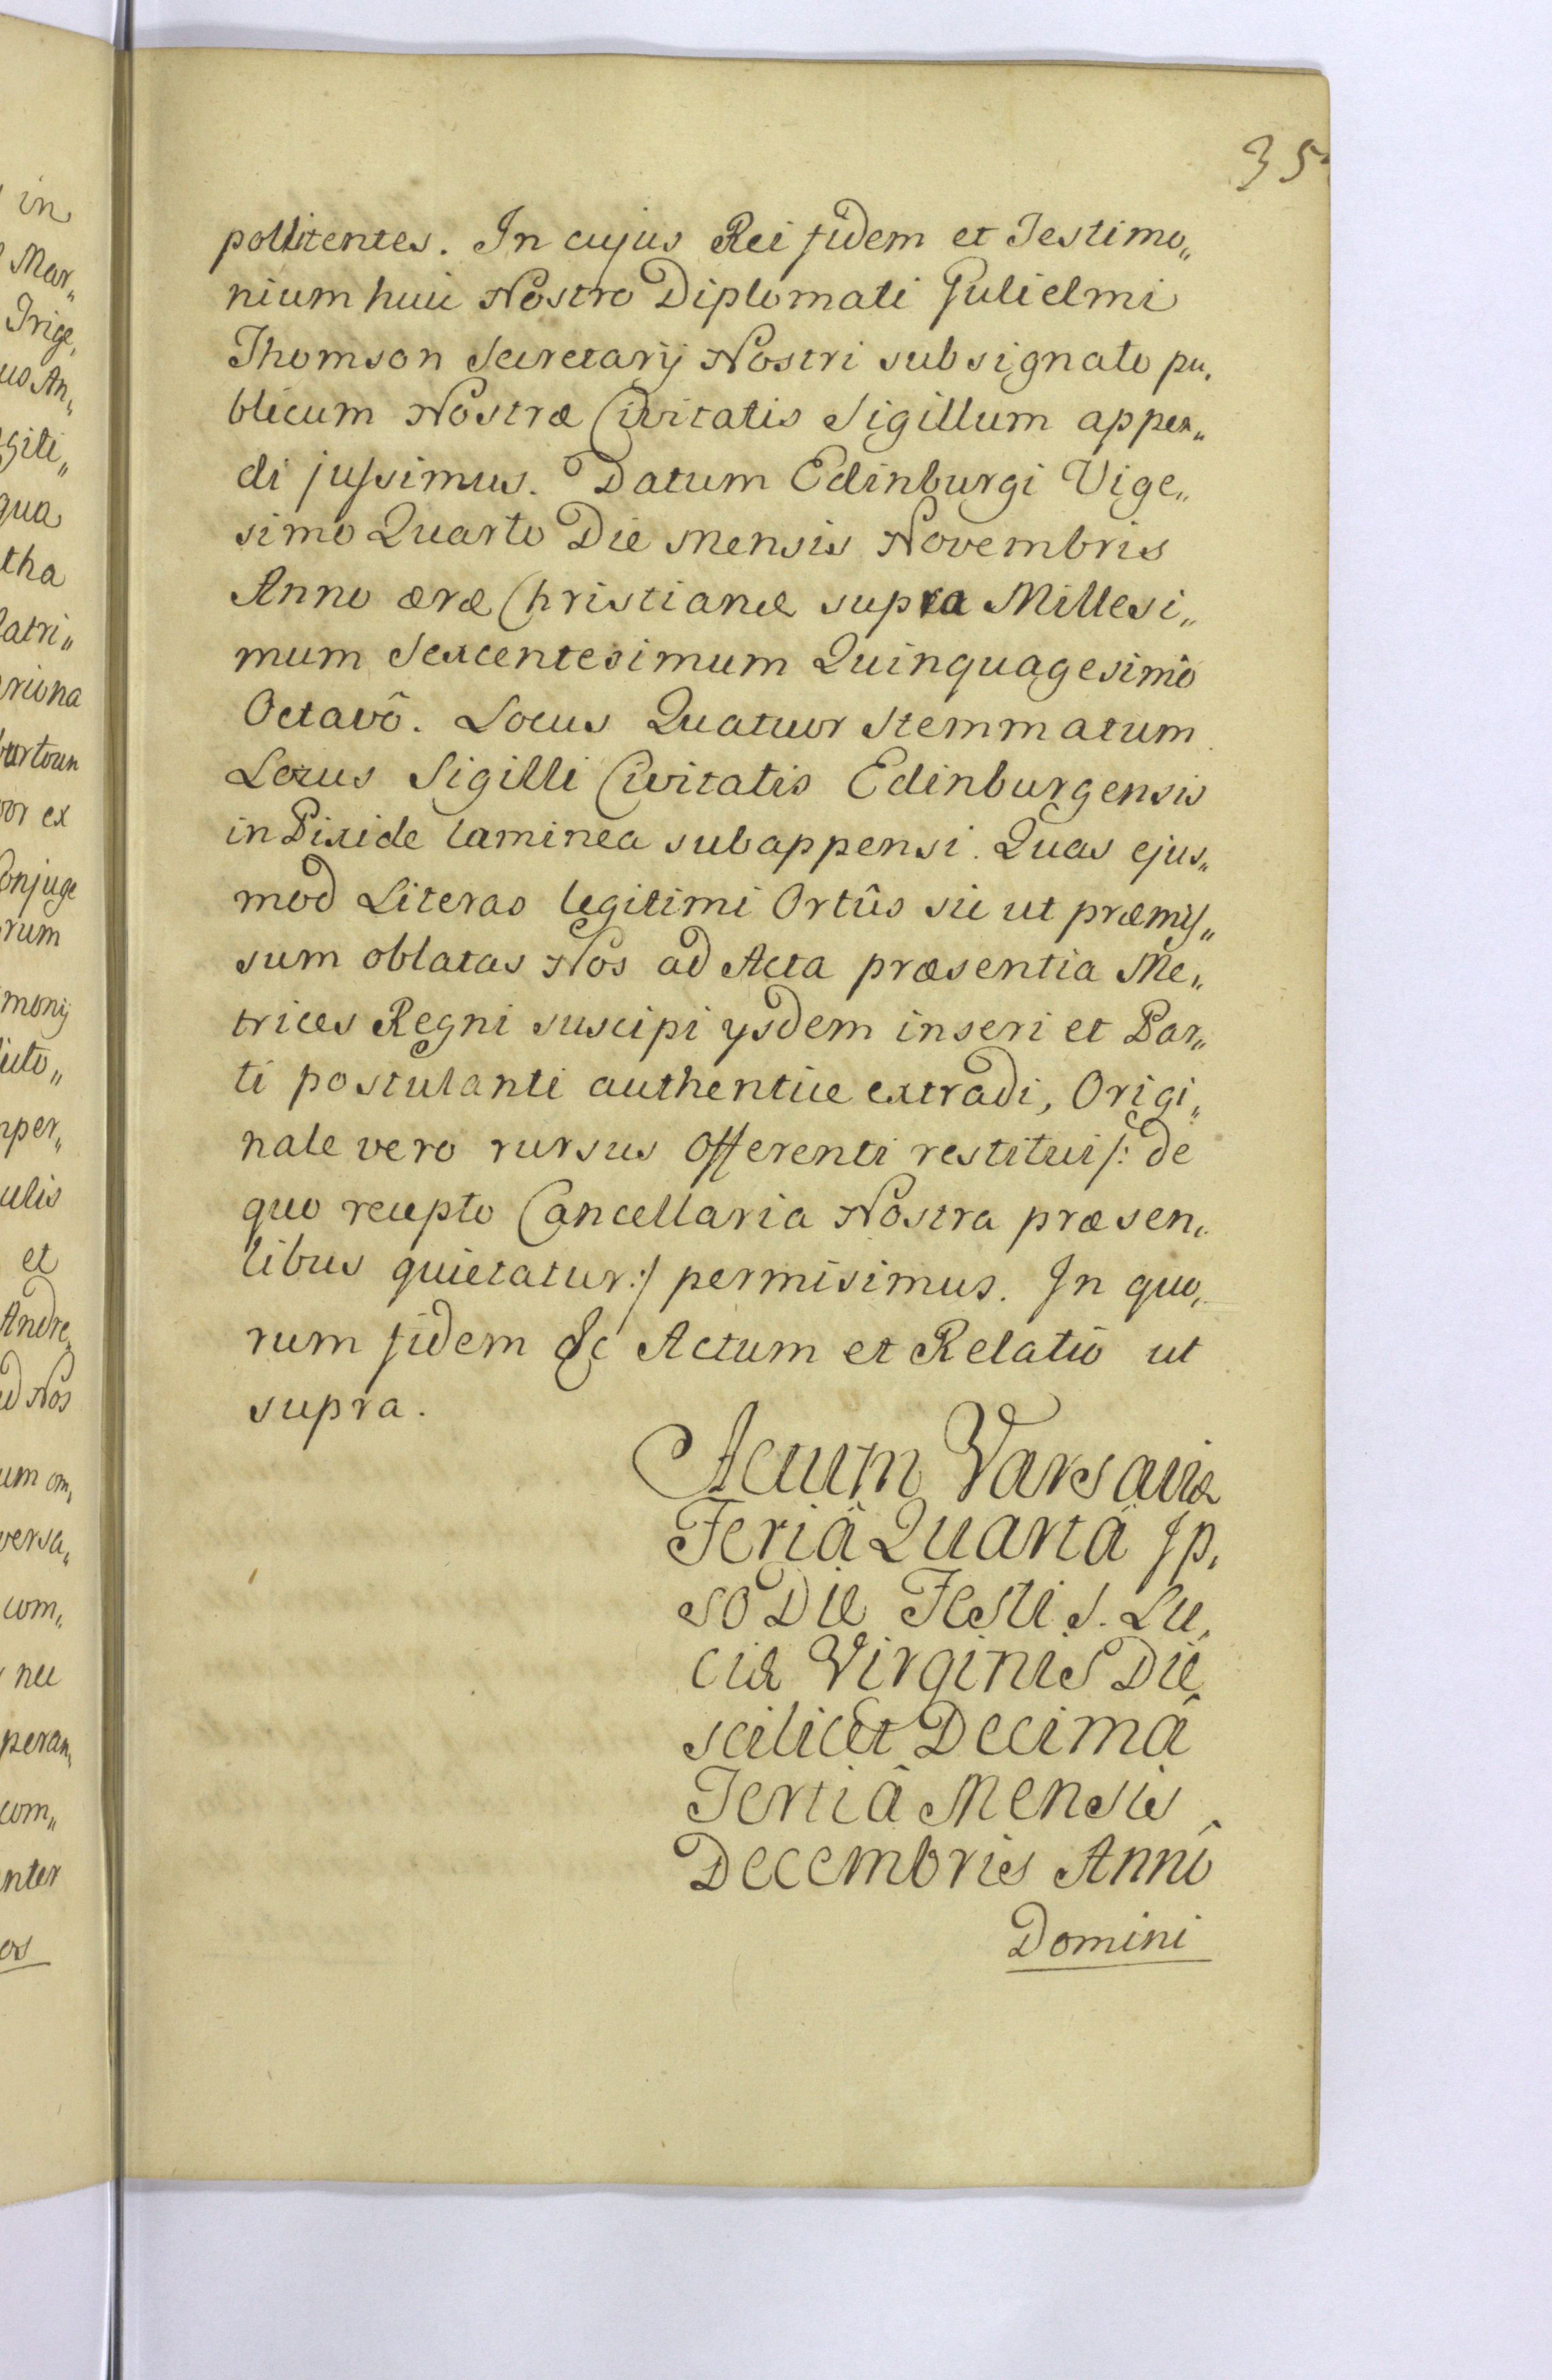 35
pollicentes. In cujus Rei fidem et Testimo„
nium huic Nostro Diplomati Gulielmi
Thomson Secretarij Nostri subsignato pu„
blicum Nostræ Civitatis Sigillum appen„
di jussimus. Datum Edinburgi Vige„
simo Quarto Die mensis Novembris
Anno æræ Christianæ supra Millesi„
mum Sexcentesimum Quinquagesimô
Octavô. Locus Quatuor Stemmatum
Locus Sigilli Civitatis Edinburgensis
in Pixide laminea subappensi. Quas ejus„
mod Literas legitimi Ortûs sic ut præmis„
sum oblatas Nos ad Acta præsentia Me„
trices Regni suscipi ysdem inseri et Par„
ti postulanti authentice extradi, Origi„
nale vero rursus Offerenti restitui /: de
quo recepto Cancellaria Nostra præsen„
tibus quietatur :/ permisimus. In quo„
rum fidem &c Actum et Relatio ut
supra.
Actum Varsaviæ
Feriâ Quartâ Ip„
so Die Festi S. Lu„
ciæ Virginis Die
scilicet Decimâ
Tertiâ Mensis
Decembris Annô
Domini
in
Mar„
Trige„
us An„
giti„
qua
tha
atri„
riona
burtoun
or ex
Conjuge
rum
monij
uto„
per„
ulis
et
Andre„
d Nos
um om„
versa„
com„
nec
peran„
com„
nter
os